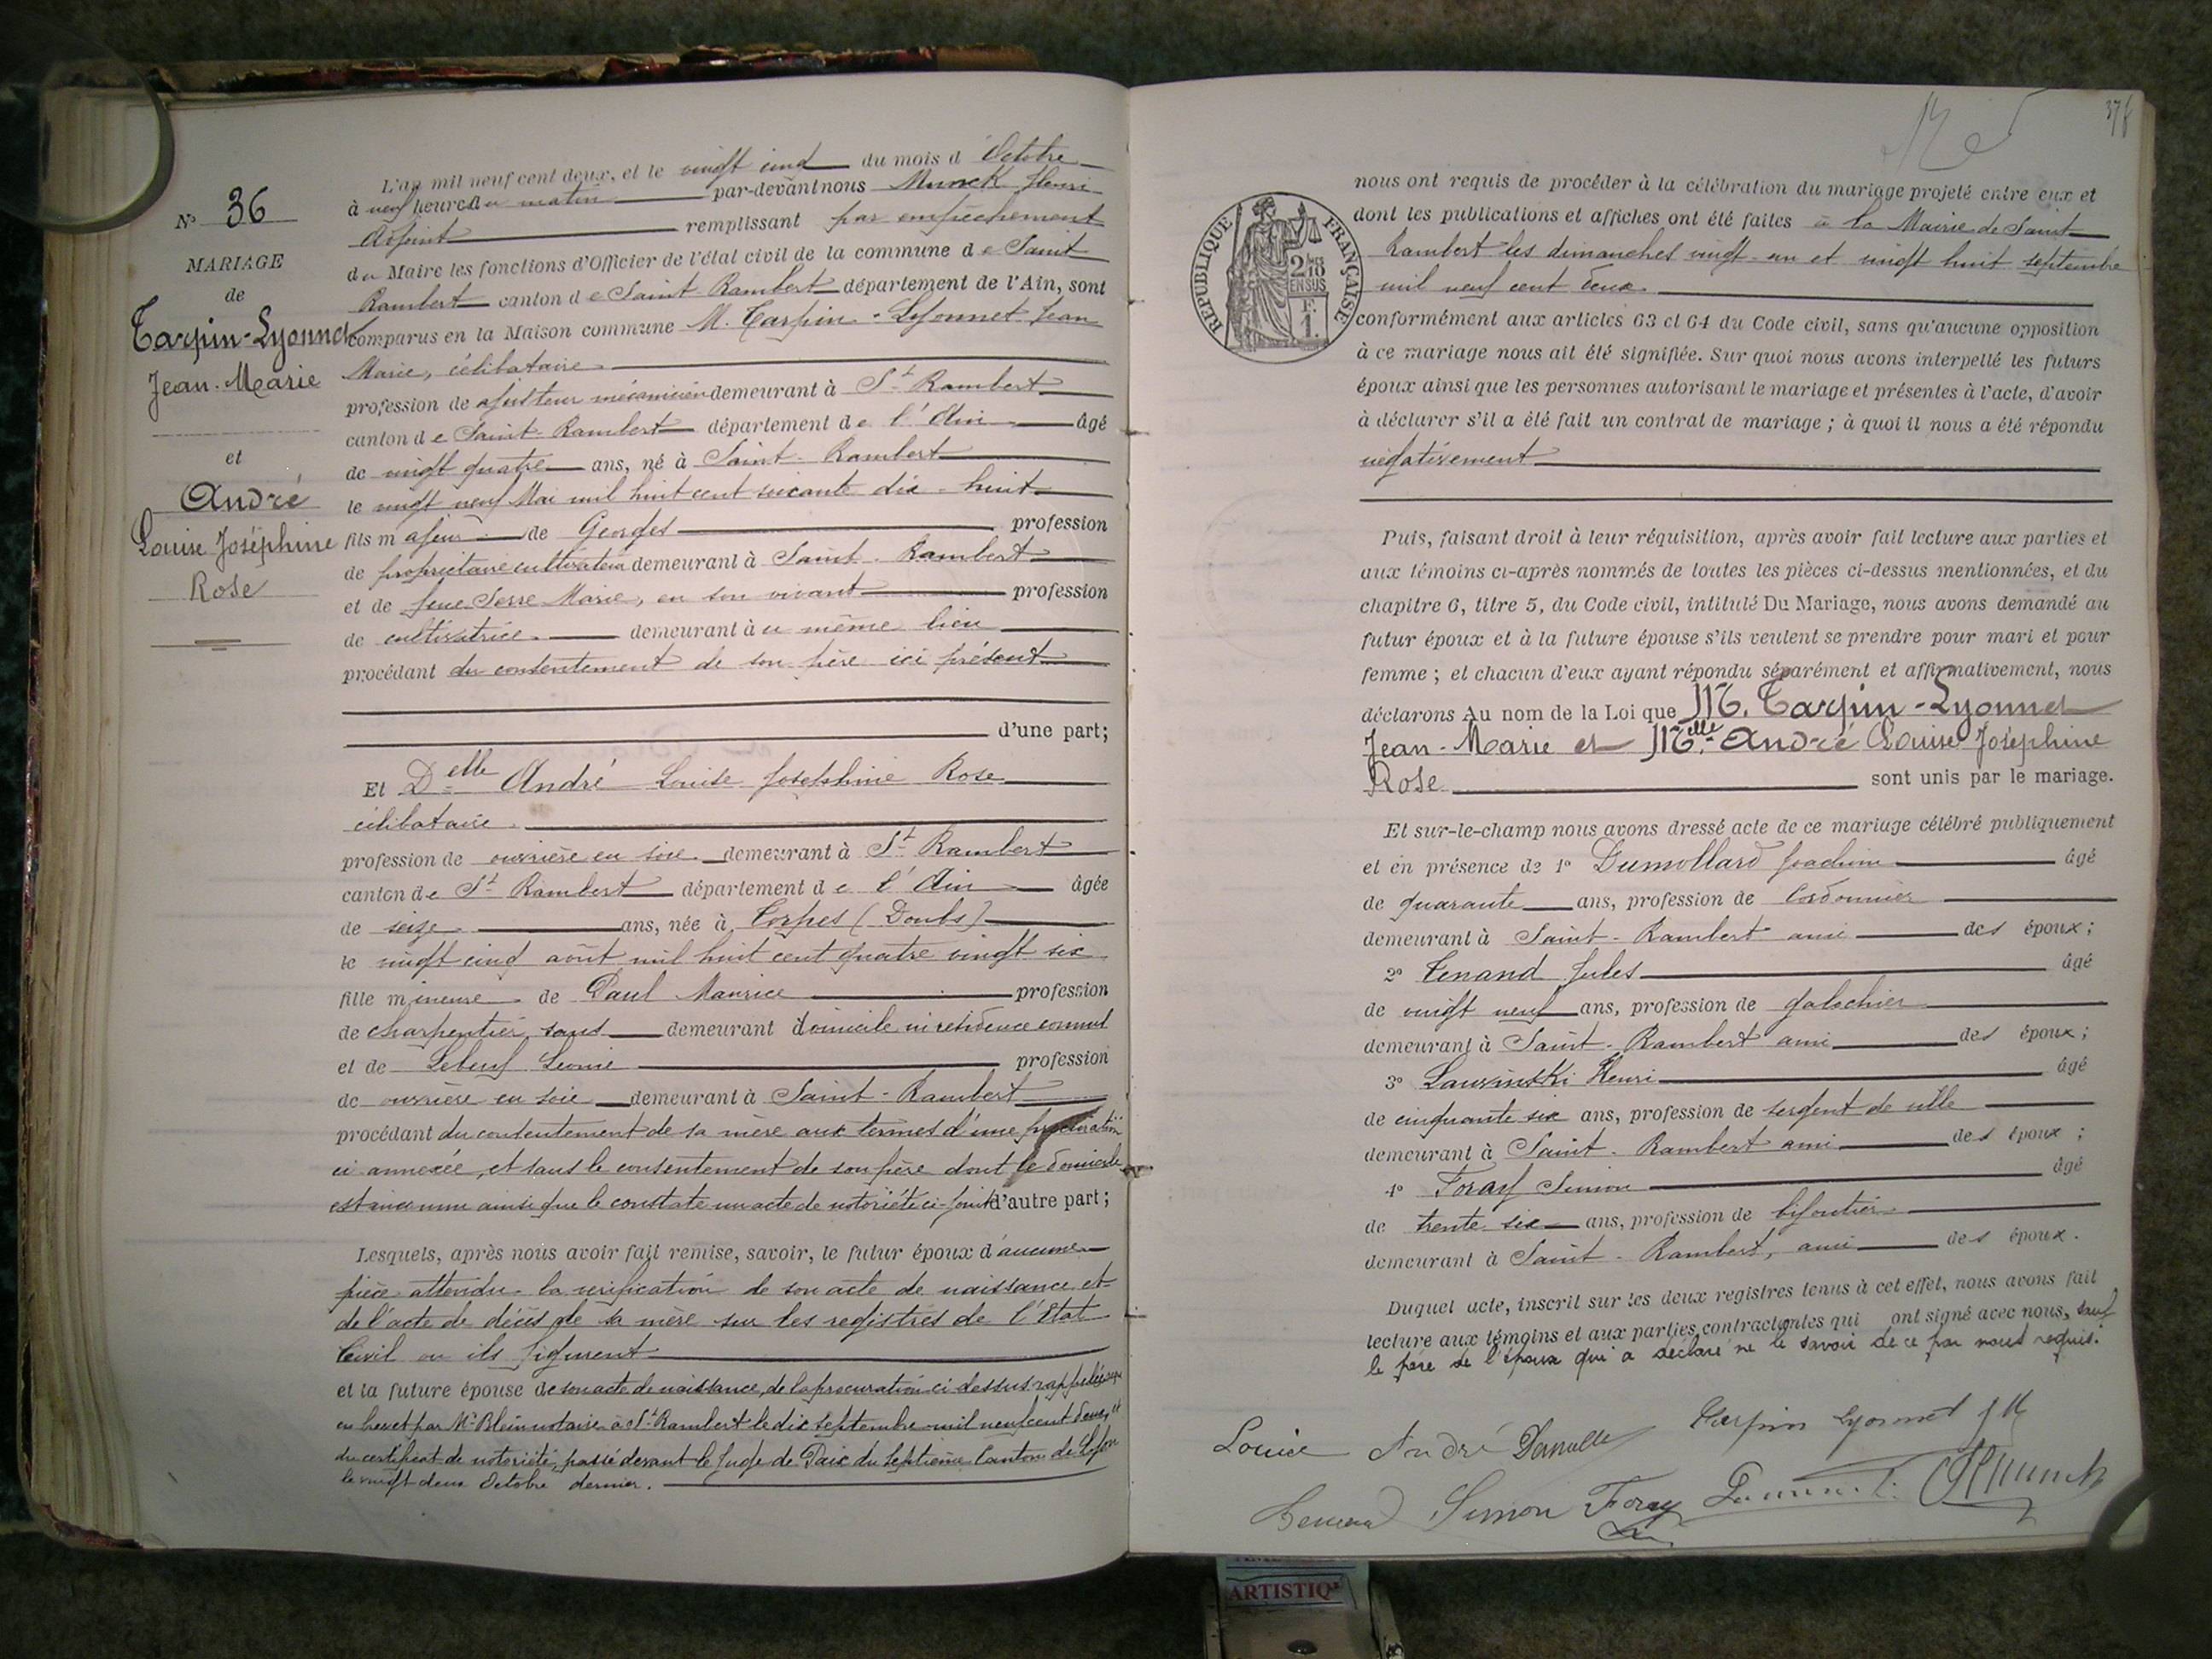 N° 36
MARIAGE
de
Tarpin-Lyonnet
Jean-Marie
et
André
Louise Joséphine
Rose
L'an mil neuf cent deux, et le vingt cinq du mois d'Octobre
à neuf heures du matin par-devant nous Munck Henri
Adjoint remplissant par empêchement
du Maire les fonctions d'Officier de l'état civil de la commune de Saint
Rambert canton de Saint Rambert département de l'Ain, sont
comparus en la Maison commune M. Tarpin-Lyonnet Jean
Marie, célibataire
profession de ajusteur mécanicien demeurant à St Rambert
canton de Saint-Rambert département de l'Ain âgé
de vingt quatre ans, né à Saint-Rambert
le vingt neuf Mai mil huit cent soixante dix-huit
fils majeur de Georges profession
de propriétaire cultivateur demeurant à Saint-Rambert
et de feue Serre Marie, en son vivant profession
de cultivatrice demeurant à ce même lieu
procédant du consentement de son père ici présent
d'une part;
Et Delle André Louise Joséphine Rose
célibataire
profession de ouvrière en soie demeurant à St Rambert
canton de St Rambert département de l'Ain âgée
de seize ans, née à Torpes (Doubs)
le vingt cinq août mil huit cent quatre vingt six
fille mineure de Paul Maurice profession
de charpentier, sans demeurant domicile ni résidence connus
et de Lebeuf Léonie profession
de ouvrière en soie demeurant à Saint-Rambert
procédant du consentement de sa mère aux termes d'une procuration
ci annexée, et sans le consentement de son père dont le domicile
est inconnu ainsi que le constate un acte de notoriété ci-joint d'autre part;
Lesquels, après nous avoir fait remise, savoir, le futur époux d'aucune
pièce attendu la vérification de son acte de naissance et
de l'acte de décès de sa mère sur les registres de l'Etat
Civil ou ils figurent
et la future épouse de son acte de naissance, de la procuration ci dessus rappelée
en brevet par Me Blein notaire à St Rambert le dix septembre mil neuf cent deux, et
du certificat de notoriété, passé devant le Juge de Paix du septième Canton de Lyon
le vingt deux Octobre dernier.
378
RÉPUBLIQUE FRANÇAISE
2/10
EN SUS
F.
1.
nous ont requis de procéder à la célébration du mariage projeté entre eux et
dont les publications et affiches ont été faites à la Mairie de Saint
Rambert les dimanches vingt-un et vingt huit septembre
mil neuf cent deux
conformément aux articles 63 et 64 du Code civil, sans qu'aucune opposition
à ce mariage nous ait été signifiée. Sur quoi nous avons interpellé les futurs
époux ainsi que les personnes autorisant le mariage et présentes à l'acte, d'avoir
à déclarer s'il a été fait un contrat de mariage ; à quoi il nous a été répondu
négativement
Puis, faisant droit à leur réquisition, après avoir fait lecture aux parties et
aux témoins ci-après nommés de toutes les pièces ci-dessus mentionnées, et du
chapitre 6, titre 5, du Code civil, intitulé Du Mariage, nous avons demandé au
futur époux et à la future épouse s'ils veulent se prendre pour mari et pour
femme ; et chacun d'eux ayant répondu séparément et affirmativement, nous
déclarons Au nom de la Loi que M. Tarpin-Lyonnet
Jean-Marie et Melle André Louise Joséphine
Rose sont unis par le mariage.
Et sur-le-champ nous avons dressé acte de ce mariage célébré publiquement
et en présence de 1° Dumollard Joachim âgé
de quarante ans, profession de Cordonnier
demeurant à Saint-Rambert ami des époux;
2° Tenand Jules âgé
de vingt neuf ans, profession de galochier
demeurant à Saint-Rambert ami des époux;
3° Henri âgé
de cinquante six ans, profession de sergent de ville
demeurant à Saint-Rambert ami des époux;
4° Foray Simon âgé
de trente six ans, profession de bijoutier
demeurant à Saint-Rambert, ami des époux.
Duquel acte, inscrit sur les deux registres tenus à cet effet, nous avons fait
lecture aux témoins et aux parties contractantes qui ont signé avec nous, sauf
le père de l'époux qui a déclaré ne le savoir de ce par nous requis.
Louise André Tarpin Lyonnet
Tenand Simon Foray Munck
ARTISTIQ